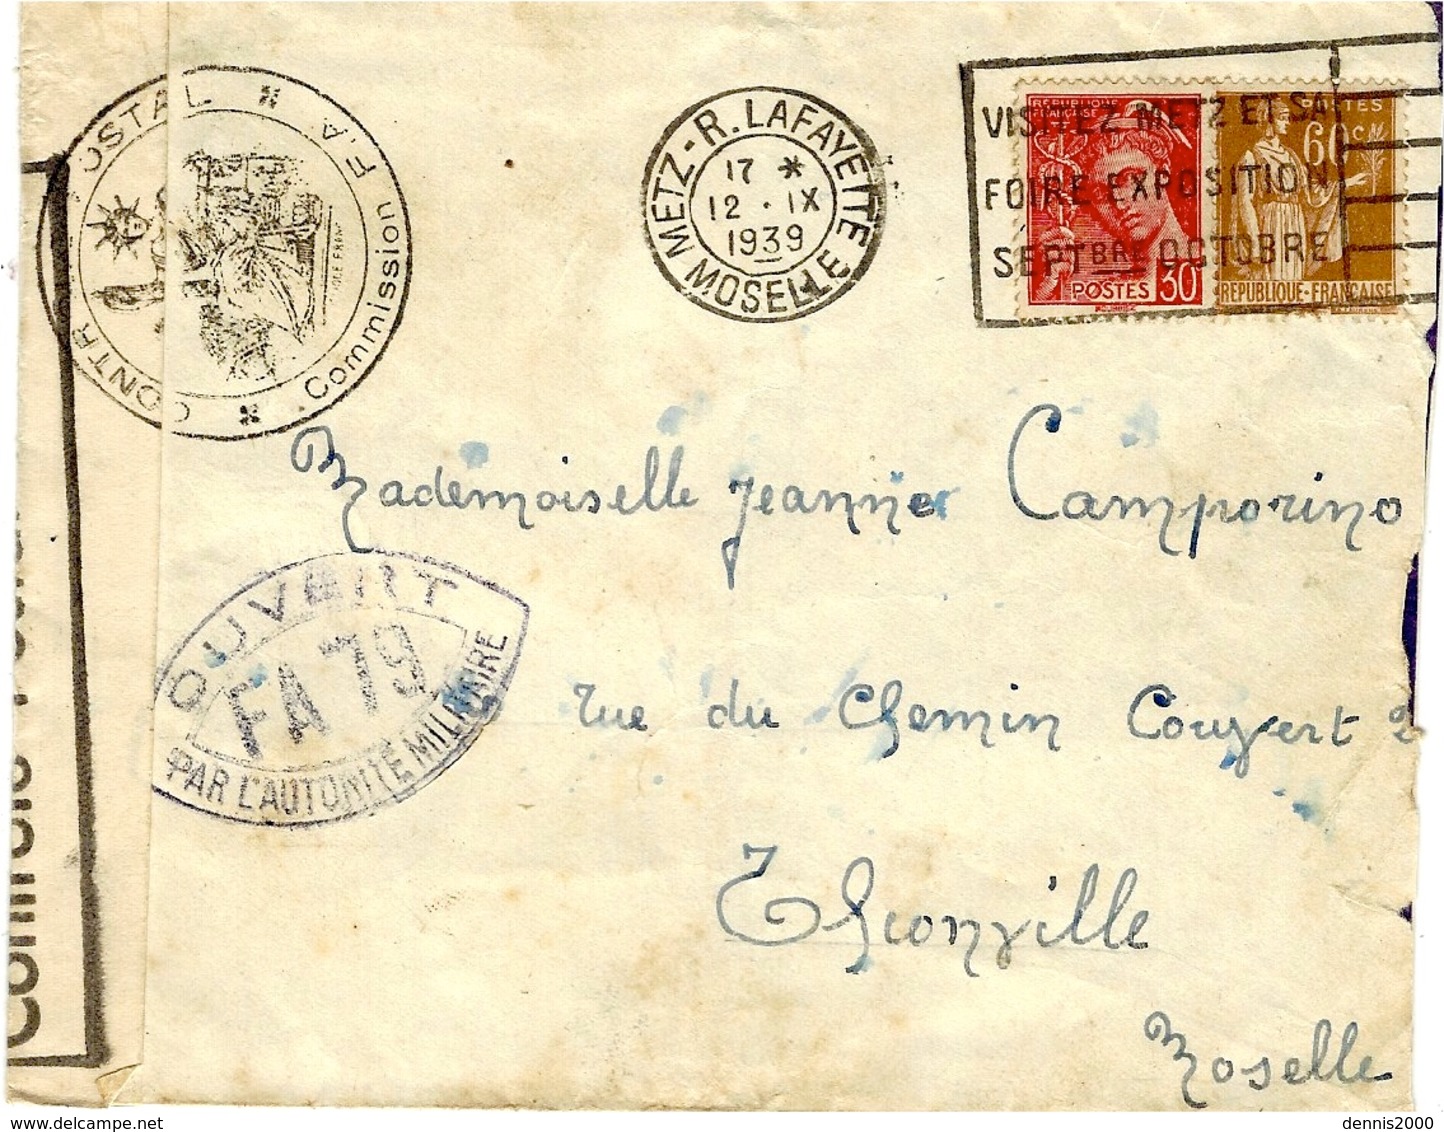 CONTR POSTAL
Commission F.A
METZ-R. LAFAYETTE
17 *
12 . IX
1939
MOSELLE
VISITEZ METZ ET SA
FOIRE EXPOSITION
SEPTBRE OCTOBRE
REPUBLIQUE
FRANÇAISE
POSTES 30
POSTES
60 C
REPUBLIQUE-FRANÇAISE
Mademoiselle Jeanne Camporino
OUVERT
FA 79
PAR L'AUTORITÉ MILITAIRE
rue du Chemin Couvert 2
Thionville
Moselle
Contrôle
dennis2000
www.delcampe.net